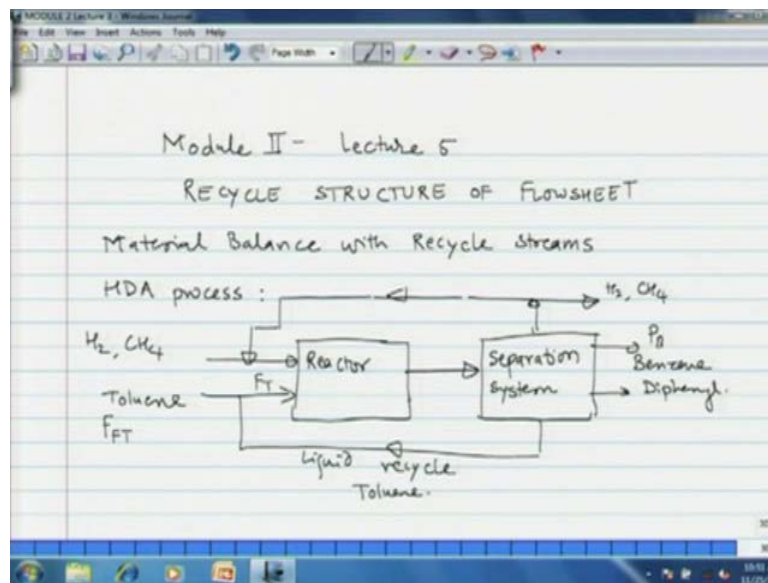 MODULE 2 Lecture 3 - Windows Journal
File Edit View Insert Actions Tools Help
Page Width
Module II - Lecture 5
RECYCLE STRUCTURE OF FLOWSHEET
Material Balance with Recycle Streams
HDA process :
H2, CH4
H2, CH4
Reactor
Separation
system
PB
Benzene
Diphenyl.
FT
Toluene
FFT
Liquid recycle
Toluene.